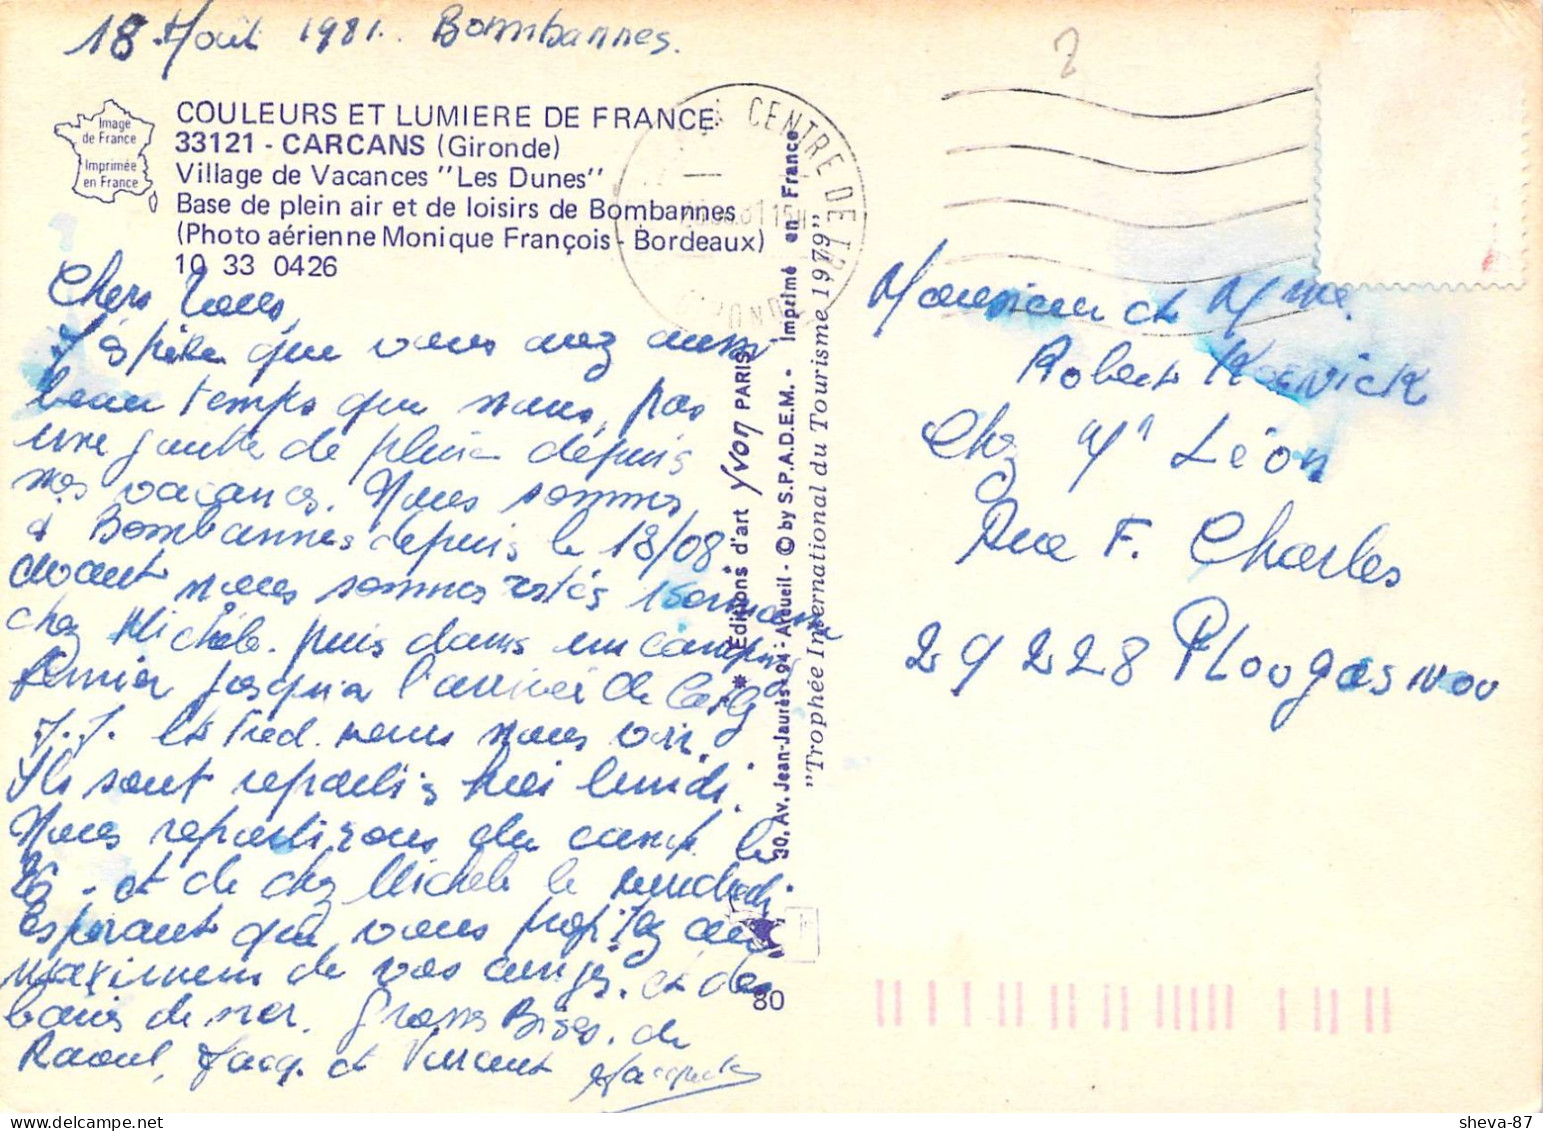 18 Août 1981. Bombannes.
Image
de France
Imprimée
en France
COULEURS ET LUMIERE DE FRANCE
33121 - CARCANS (Gironde)
Village de Vacances "Les Dunes"
Base de plein air et de loisirs de Bombannes
(Photo aérienne Monique François - Bordeaux)
10 33 0426
Chers Tous,
J'éspère que vous avez aussi
beau temps que nous, pas
une goutte de pluie dépuis
nos vacances. Nous sommes
à Bombannes depuis le 18/08
avant nous sommes restés 1 semaine
chez Michèle. puis dans un camping
fermier jusqu'a l'arrivée de
J.J. et Fred. venus nous voir.
Ils sont repartis hier lundi.
Nous repartirons du camp le
26 - et de chez Michèle le vendredi
Esperant que vous profitez au
maximum de vos congés. et des
bains de mer. Grosses Bises. de
Raoul, Jacq. et Vincent
* Editions d'art Yvon PARIS
30, Av. Jean-Jaurès - 94 - Arcueil - © by S.P.A.D.E.M. • Imprimé en France
"Trophée International du Tourisme 1979"
80
CENTRE DE TRI
GIRONDE
Monsieur et Mme.
Robert
Chez Mr Léon
Rue F. Charles
29228 Plougasnou
sheva-87